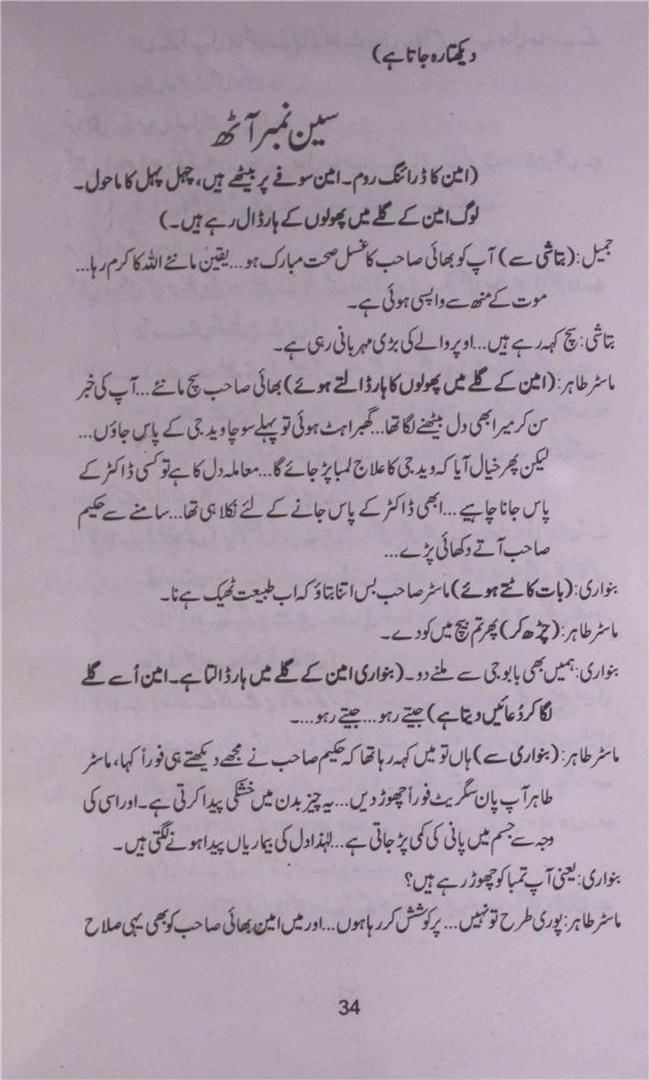 دیکھتا رہ جاتا ہے)
سین نمبر آٹھ
(امین کا ڈرائنگ روم۔ امین سوفے پر بیٹھے ہیں، چہل پہل کا ماحول۔
لوگ امین کے گلے میں پھولوں کے ہار ڈال رہے ہیں۔)
جمیل: (بتاشی سے) آپ کو بھائی صاحب کا غسل صحت مبارک ہو... یقین مانئے اللہ کا کرم رہا...
موت کے منھ سے واپسی ہوئی ہے۔
بتاشی: سچ کہہ رہے ہیں... اوپر والے کی بڑی مہربانی رہی ہے۔
ماسٹر طاہر: (امین کے گلے میں پھولوں کا ہار ڈالتے ہوئے) بھائی صاحب سچ مانئے... آپ کی خبر
سن کر میرا بھی دل بیٹھنے لگا تھا... گھبراہٹ ہوئی تو پہلے سوچا وید جی کے پاس جاؤں...
لیکن پھر خیال آیا کہ وید جی کا علاج لمبا پڑ جائے گا... معاملہ دل کا ہے تو کسی ڈاکٹر کے
پاس جانا چاہیے... ابھی ڈاکٹر کے پاس جانے کے لئے نکلا ہی تھا... سامنے سے حکیم
صاحب آتے دکھائی پڑے...
بنواری: (بات کاٹتے ہوئے) ماسٹر صاحب بس اتنا بتاؤ کہ اب طبیعت ٹھیک ہے نا۔
ماسٹر طاہر: (چڑھ کر) پھر تم بیچ میں کودے۔
بنواری: ہمیں بھی بابو جی سے ملنے دو۔ (بنواری امین کے گلے میں ہار ڈالتا ہے۔ امین اُسے گلے
لگا کر دُعائیں دیتا ہے) جیتے رہو... جیتے رہو...۔
ماسٹر طاہر: (بنواری سے) ہاں تو میں کہہ رہا تھا کہ حکیم صاحب نے مجھے دیکھتے ہی فوراً کہا، ماسٹر
طاہر آپ پان سگریٹ فوراً چھوڑ دیں... یہ چیز بدن میں خشکی پیدا کرتی ہے۔ اور اسی کی
وجہ سے جسم میں پانی کی کمی پڑ جاتی ہے... لہٰذا دل کی بیماریاں پیدا ہونے لگتی ہیں۔
بنواری: یعنی آپ تمباکو چھوڑ رہے ہیں؟
ماسٹر طاہر: پوری طرح تو نہیں... پر کوشش کر رہا ہوں... اور میں امین بھائی صاحب کو بھی یہی صلاح
34